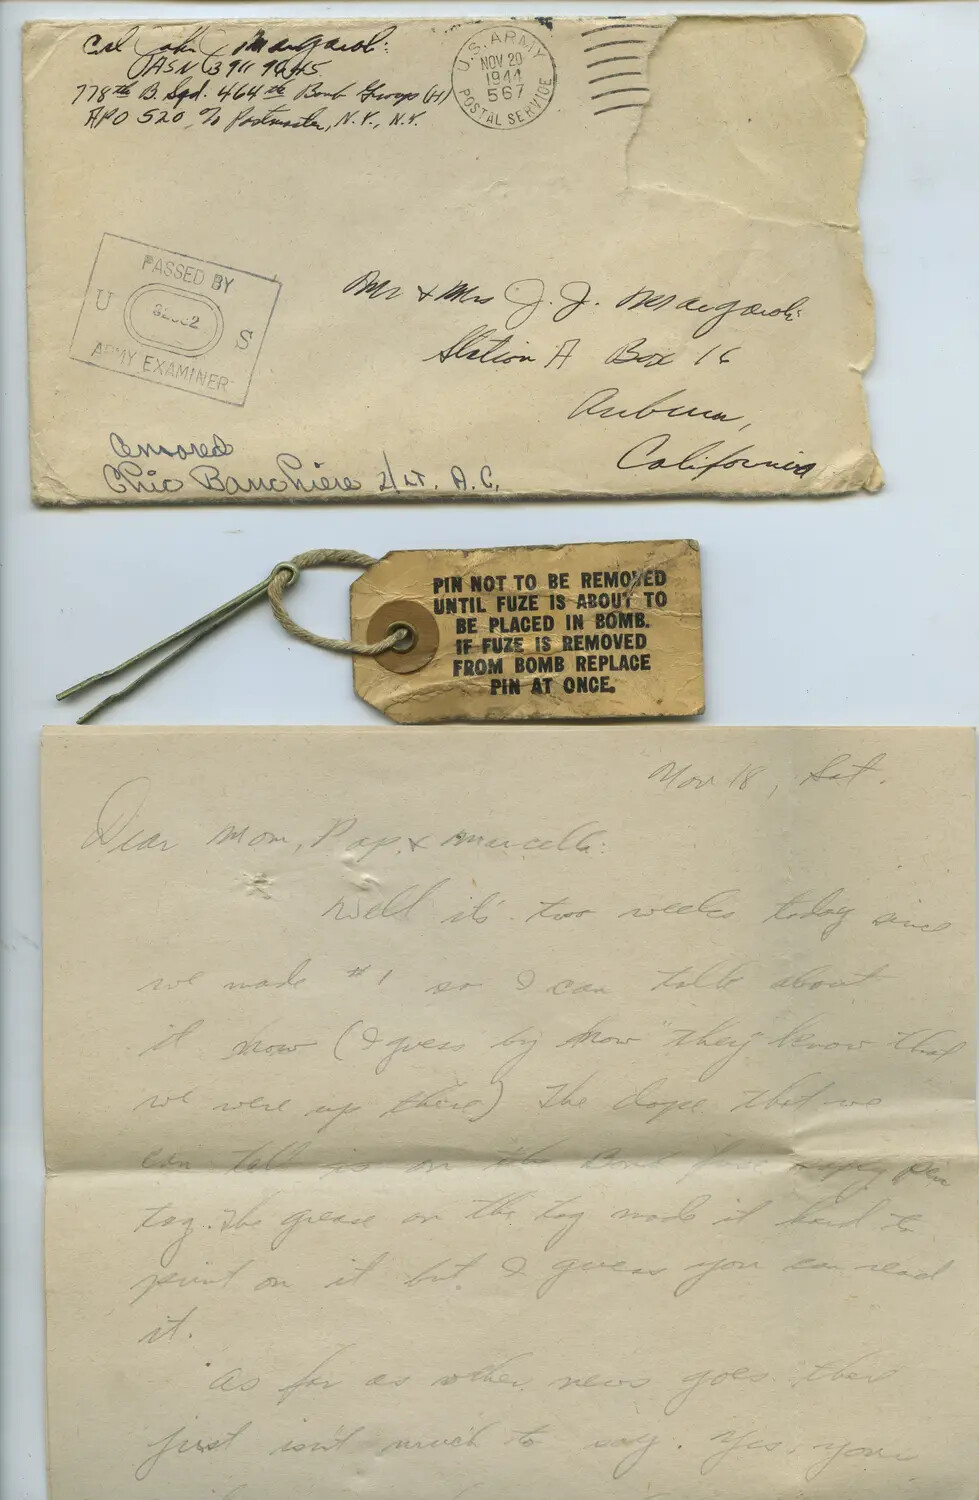 Cpl John J. Margaroli
ASN 39119945
778th B. Sqd. 464th Bomb Group (H)
APO 520 c/o Postmaster, N.Y., N.Y.
U.S. ARMY
NOV 20
1944
567
POSTAL SERVICE
PASSED BY
U S
ARMY EXAMINER
Mr & Mrs J. J. Margaroli
Station A Box 16
Auburn,
California
Censored
2/Lt. A.C.
PIN NOT TO BE REMOVED
UNTIL FUZE IS ABOUT TO
BE PLACED IN BOMB.
IF FUZE IS REMOVED
FROM BOMB REPLACE
PIN AT ONCE.
Nov 18, Sat.
Dear Mom, Pap, & Marcella:
Well it's two weeks today since
we made #1 so I can talk about
it now (I guess by now "they" know that
we were up there) The dope that we
can tell is on the Bomb fuze pin
tag. The grease on the tag made it hard to
print on it but I guess you can read
it.
As far as other news goes there
just isn't much to say. Yes, your